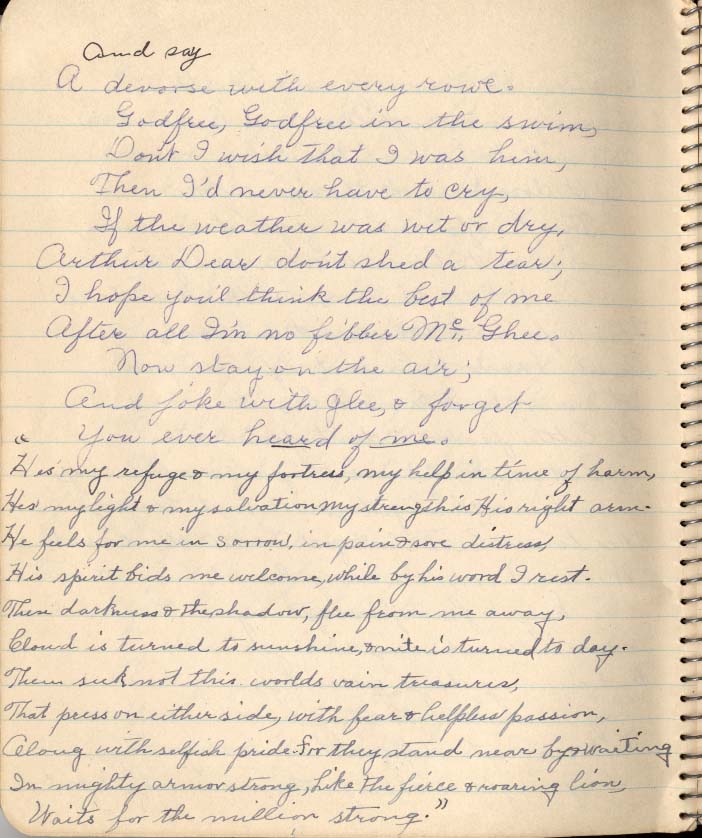 And say
A devorse with every rowe.
Godfree, Godfree in the swim,
Don't I wish that I was him,
Then I'd never have to cry,
If the weather was wet or dry,
Arthur Dear don't shed a tear;
I hope you'l think the best of me
After all I'm no fibber Mc. Ghee.
Now stay on the air;
And joke with glee, & forget
You ever heard of me.
"Hes' my refuge & my fortress, my help in time of harm,
Hes' my light & my salvation my strength is His right arm.
He feels for me in sorrow, in pain & sore distress,
His spirit bids me welcome, while by his word I rest.
Then darkness & the shadow, flee from me away,
Cloud is turned to sunshine, & nite is turned to day.
Then seek not this worlds vain treasures,
That press on either side, with fear & helpless passion,
Along with selfish pride. For they stand near by & waiting
In mighty armor strong, like the fierce & roaring lion,
Waits for the million strong."